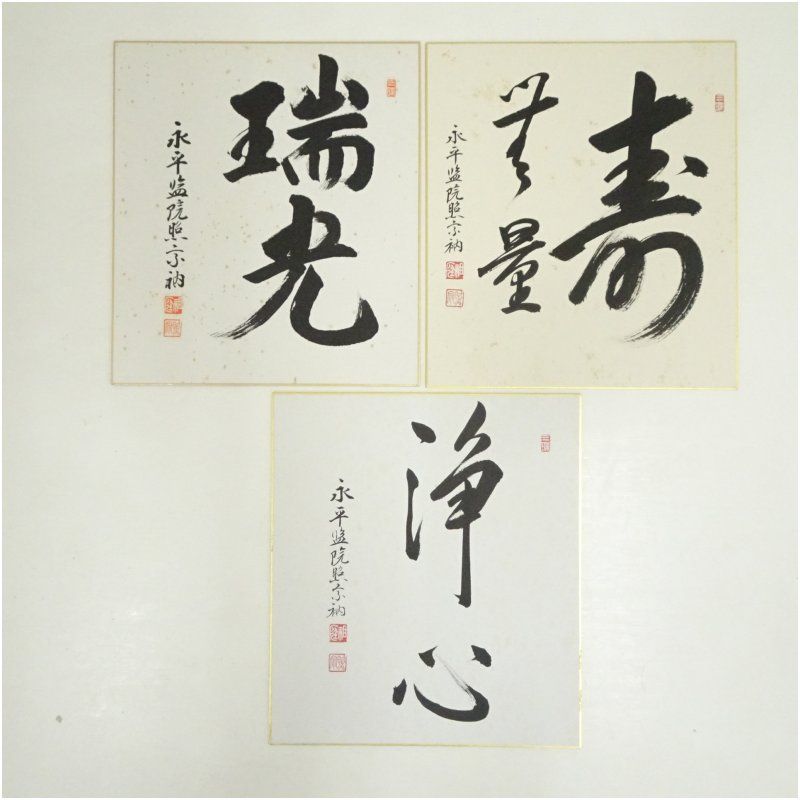 瑞光
永平監院照宗衲
寿
無量
永平監院照宗衲
浄心
永平監院照宗衲